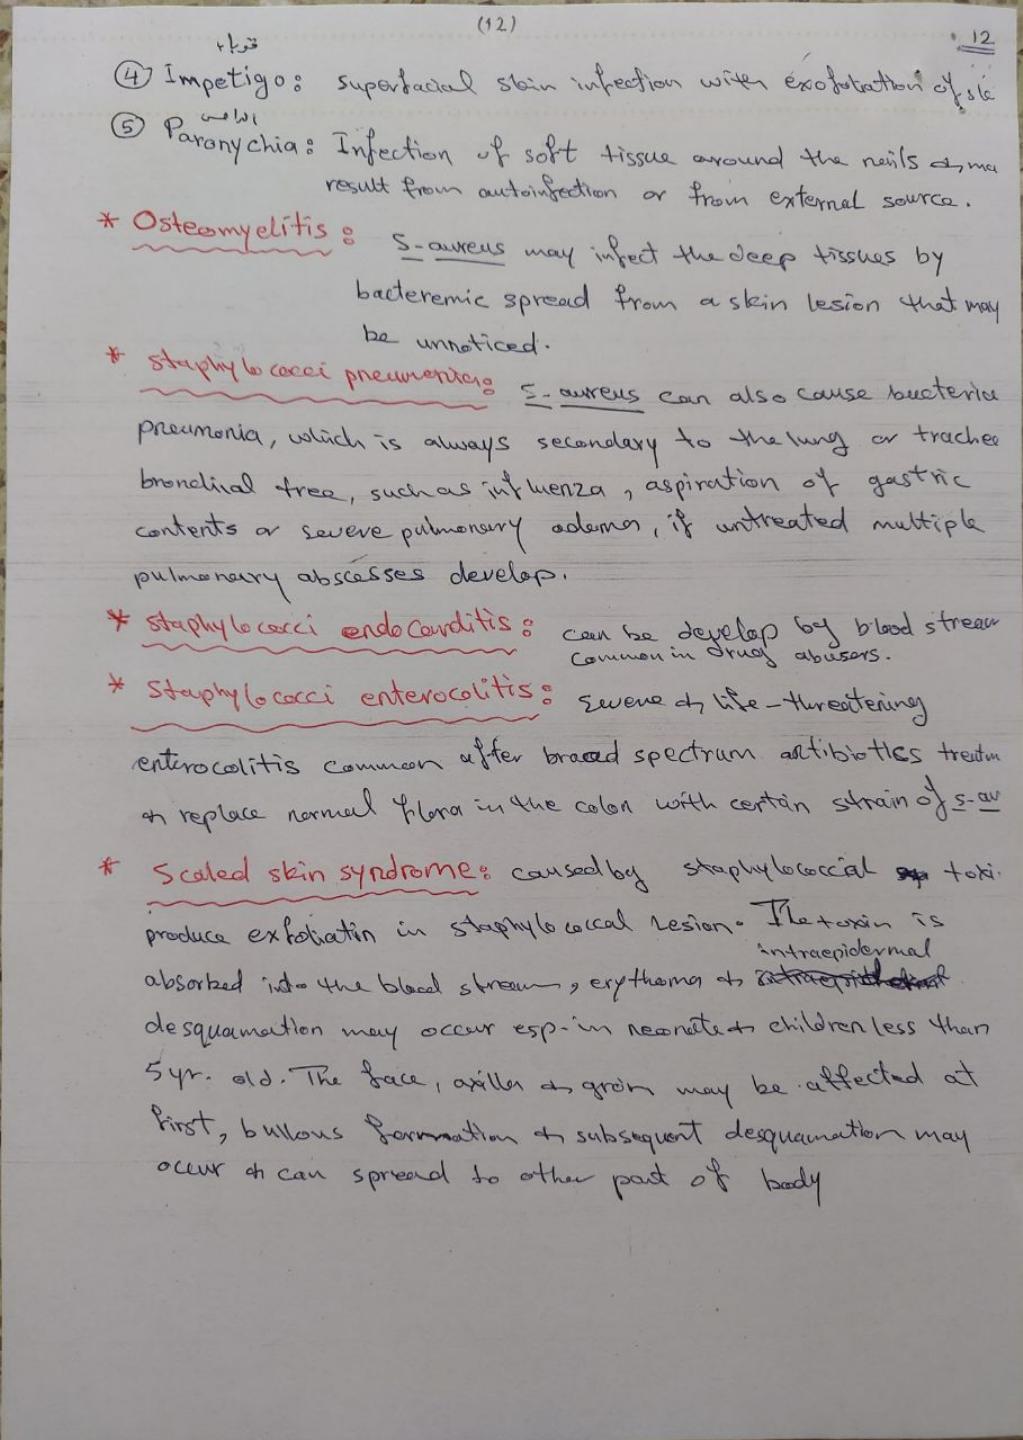 (12)
12
قوباء
④ Impetigo: superfacial skin infection with exofolation of
الداحس
⑤ Paronychia: Infection of soft tissue around the nails &
result from autoinfection or from external source.
* Osteomyelitis: S-aureus may infect the deep tissues by
bacteremic spread from a skin lesion that may
be unnoticed.
* Staphylococci pneumonia: S-aureus can also cause bacteria
pneumonia, which is always secondary to the lung or trachee
bronchial tree, such as influenza, aspiration of gastric
contents or severe pulmonary odema, if untreated multiple
pulmonary abscesses develop.
* Staphylococci endocarditis: can be develop by blood stream
common in drug abusers.
* Staphylococci enterocolitis: Severe & life-threatening
enterocolitis common after broad spectrum antibiotics treatm
& replace normal flora in the colon with certain strain of S-au
* Scaled skin syndrome: caused by staphylococcal toxi
produce exfoliatin in staphylococcal lesion. The toxin is
intraepidermal
absorbed into the blood stream, erythema &
desquamation may occur esp-in neonate & children less than
5yr. old. The face, axilla & groin may be affected at
first, bullous formation & subsequent desquamation may
occur & can spread to other part of body